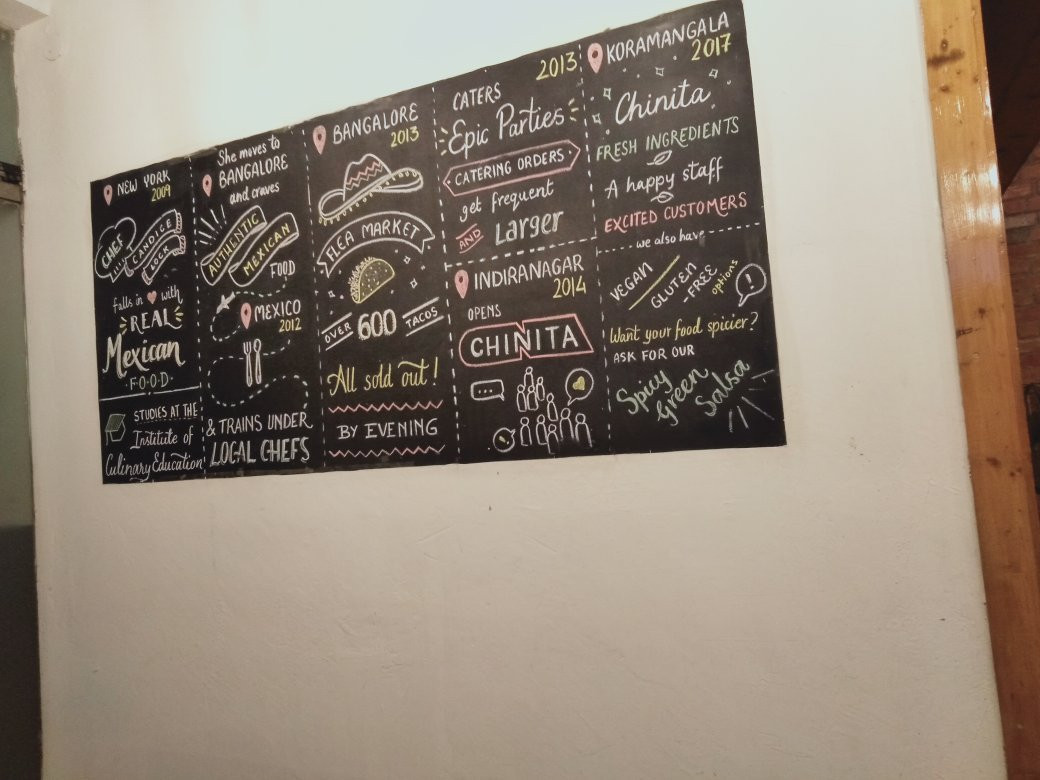 NEW YORK
2009
CHEF
CANDICE
LOCK
falls in with
REAL
Mexican
FOOD
STUDIES AT THE
Institute of
Culinary Education
She moves to
BANGALORE
and craves
AUTHENTIC
MEXICAN
FOOD
MEXICO
2012
& TRAINS UNDER
LOCAL CHEFS
BANGALORE
2013
FLEA MARKET
OVER 600 TACOS
All sold out!
BY EVENING
2013
CATERS
Epic Parties
CATERING ORDERS
get frequent
AND Larger
INDIRANAGAR
2014
OPENS
CHINITA
KORAMANGALA
2017
Chinita
FRESH INGREDIENTS
A happy staff
EXCITED CUSTOMERS
we also have
VEGAN
GLUTEN
-FREE options
!
Want your food spicier?
ASK FOR OUR
Spicy
Green
Salsa